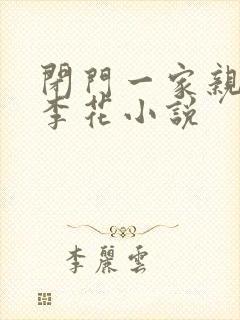 閉門一家親
李花小說
李麗雲